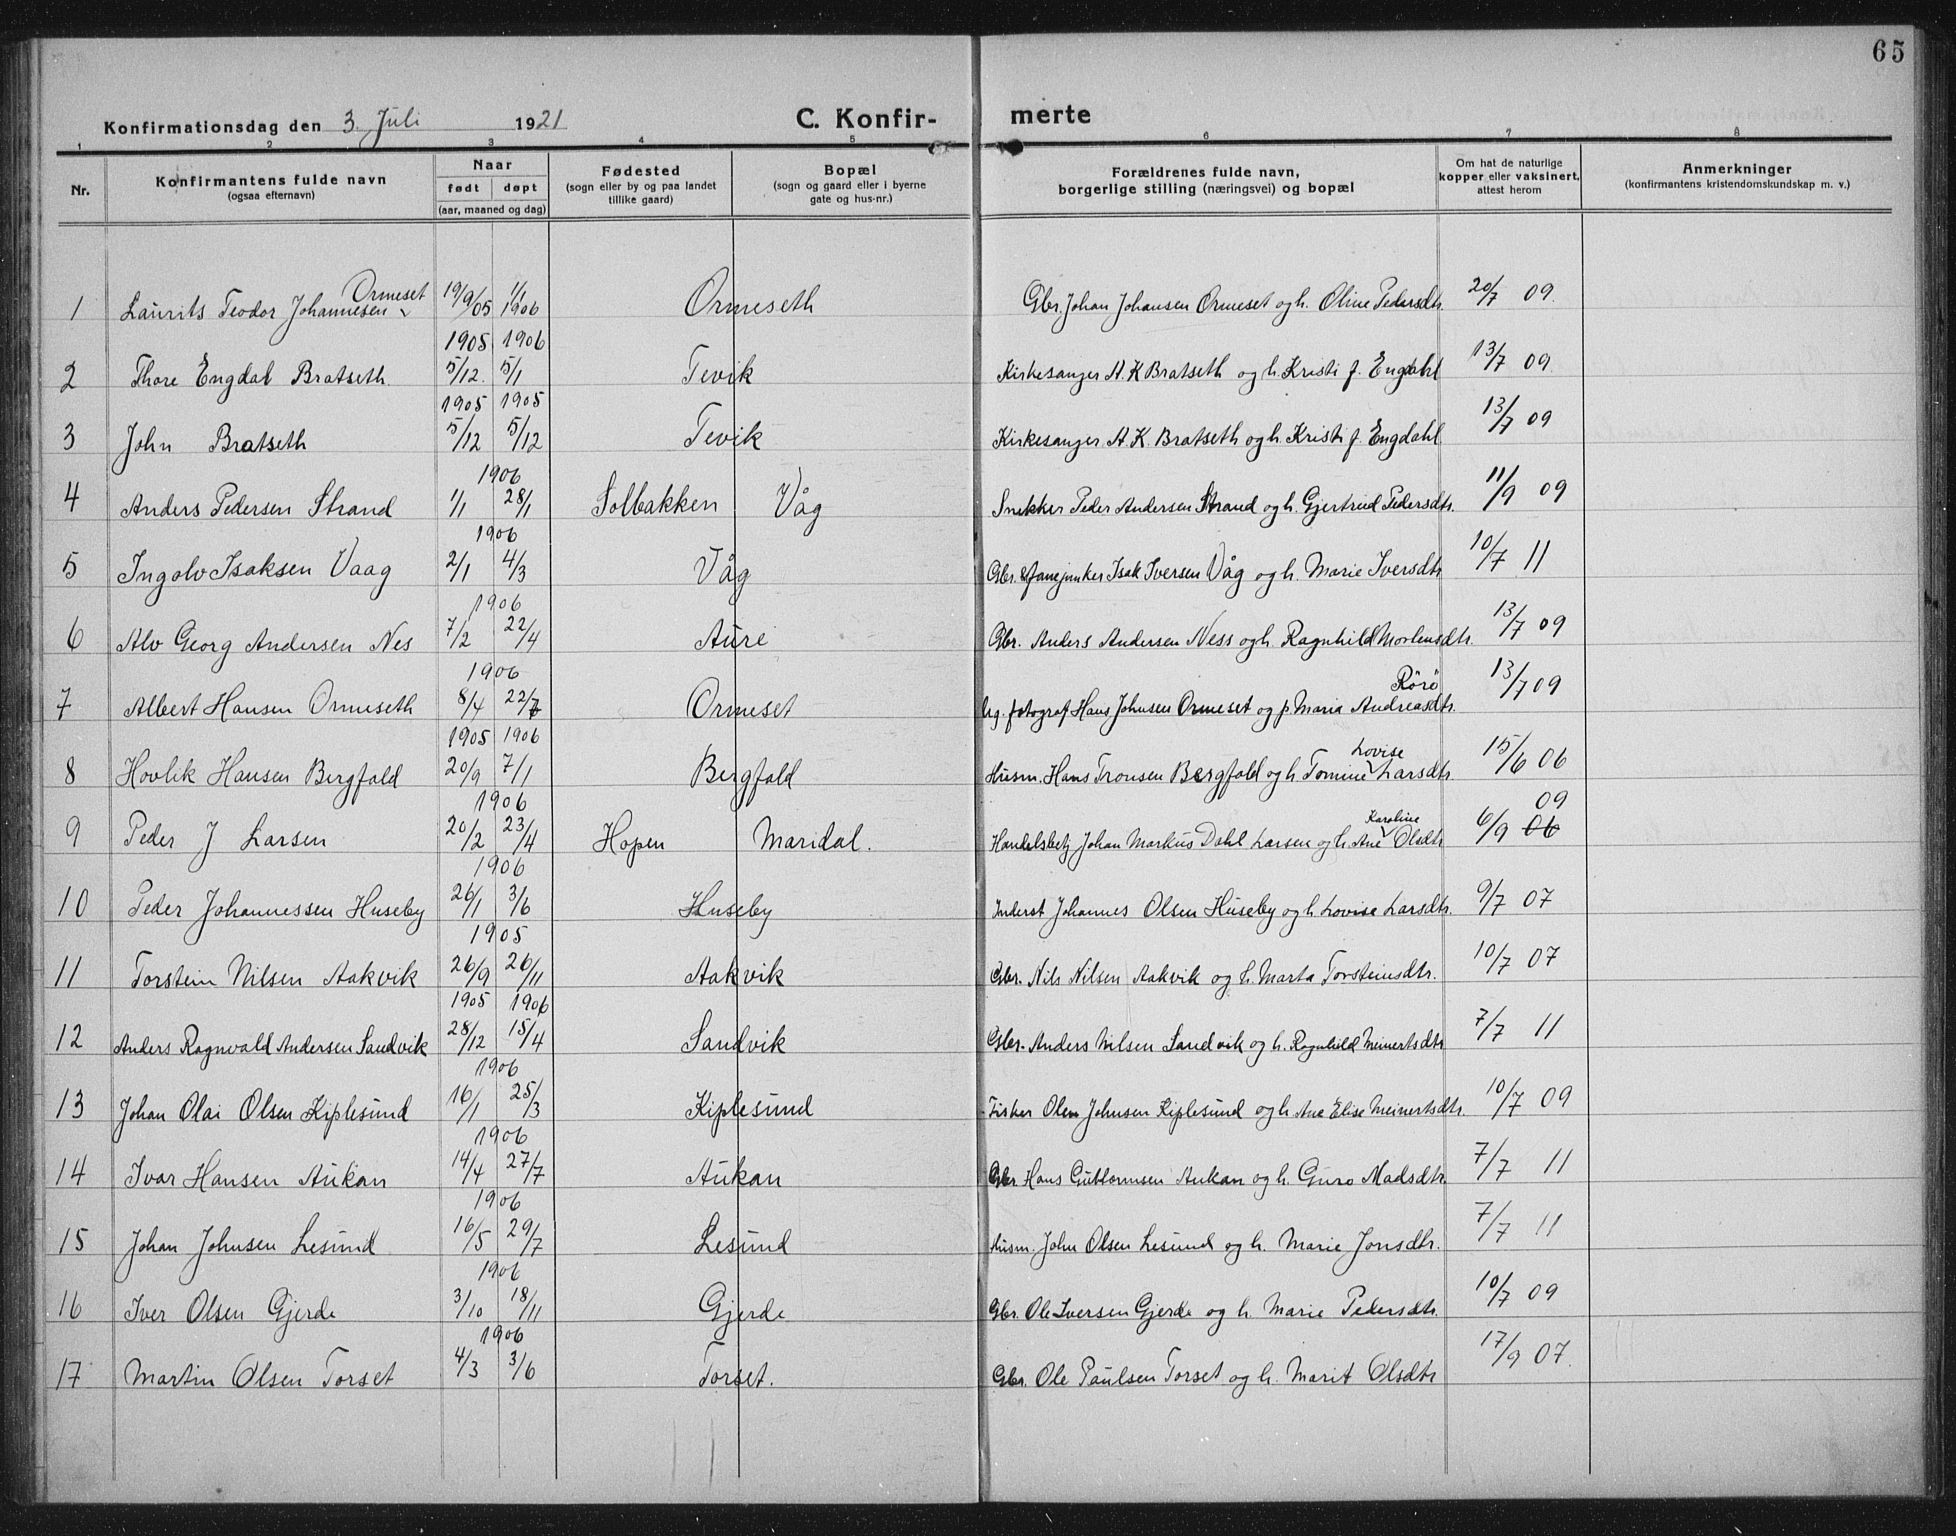 65
Konfirmationsdag den 3. Juli 1921 C. Konfir- merte
1 2 3 4 5 6 7 8
Nr. Konfirmantens fulde navn (ogsaa efternavn) Naar født døpt (aar, maaned og dag) Fødested (sogn eller by og paa landet tillike gaard) Bopæl (sogn og gaard eller i byerne gate og hus-nr.) Forældrenes fulde navn, borgerlige stilling (næringsvei) og bopæl Om hat de naturlige kopper eller vaksinert, attest herom Anmerkninger (konfirmantens kristendomskundskap m. v.)
1 Laurits Teodor Johannesen Ormeset 19/9 05 1/1 1906 Ormeseth Gbr. Johan Johansen Ormeset og h. Oline Pedersdtr. 20/7 09.
2 Thore Engdal Bratseth 1905 5/12. 1906 5/1 Tevik Kirkesanger A. K Bratseth og h. Kristi f. Engdahl 13/7 09
3 John Bratseth 1905 5/12 1905 5/12 Tevik Kirkesanger A. K. Bratseth og h. Kristi f. Engdahl 13/7 09
4 Anders Pedersen Strand 1906 1/1 28/1 Solbakken Våg Snekker Peder Andersen Strand og h. Gjertrud Pedersdtr. 11/9 09
5 Ingolv Isaksen Vaag 1906 2/1 4/3 Våg Gbr. & fanejunker Isak Iversen Våg og h. Marie Iversdtr 10/7 11
6 Alv Georg Andersen Nes 1906 7/2 22/4 Aure Gbr. Anders Andersen Ness og h. Ragnhild Mortensdtr. 13/7 09
7 Albert Hansen Ormseth 1906 8/4 22/7 Ormeset Ug. fotograf Hans Johnsen Ormeset og p. Maria Andreasdtr. Rörö 13/7 09
8 Hovlik Hansen Bergfald 1905 20/9 1906 7/1 Bergfald Husm. Hans Tronsen Bergfald og h. Tomine Lovise Larsdtr. 15/6 06
9 Peder J Larsen 1906 20/2 23/4 Hopen Maridal. Handelsbetj Johan Markus Dahl Larsen og h. Ane Karoline Olsdtr 6/9 06 09
10 Peder Johannessen Huseby 1906 26/1 3/6 Huseby Inderst Johannes Olsen Huseby og h. Lovise Larsdtr. 9/7 07
11 Torstein Nilsen Aakvik 1905 26/9 26/11 Aakvik Gbr. Nils Nilsen Aakvik og h. Marta Torsteinsdtr. 10/7 07
12 Anders Ragnvald Andersen Sandvik 1905 28/12 1906 15/4 Sandvik Gbr. Anders Nilsen Sandvik og h. Ragnhild Meinertsdtr 7/7 11
13 Johan Olai Olsen Kiplesund 1906 16/1 25/3 Kiplesund Fisker Olen Johnsen Kiplesund og h. Ane Elise Meinertsdtr. 10/7 09
14 Ivar Hansen Aukan 1906 14/4 27/7 Aukan Gbr Hans Guttormsen Aukan og h. Guro Madsdtr. 7/7 11
15 Johan Johnsen Lesund 1906 16/5 29/7 Lesund Husm. John Olsen Lesund og h. Marie Jonsdtr. 7/7 11
16 Iver Olsen Gjerde 1906 3/10 18/11 Gjerde Gbr. Ole Iversen Gjerde og h. Marie Pedersdtr. 10/7 09
17 Martin Olsen Torset 1906 4/3 3/6 Torset. Gbr. Ole Paulsen Torset og h. Marit Olsdtr 17/9 07.